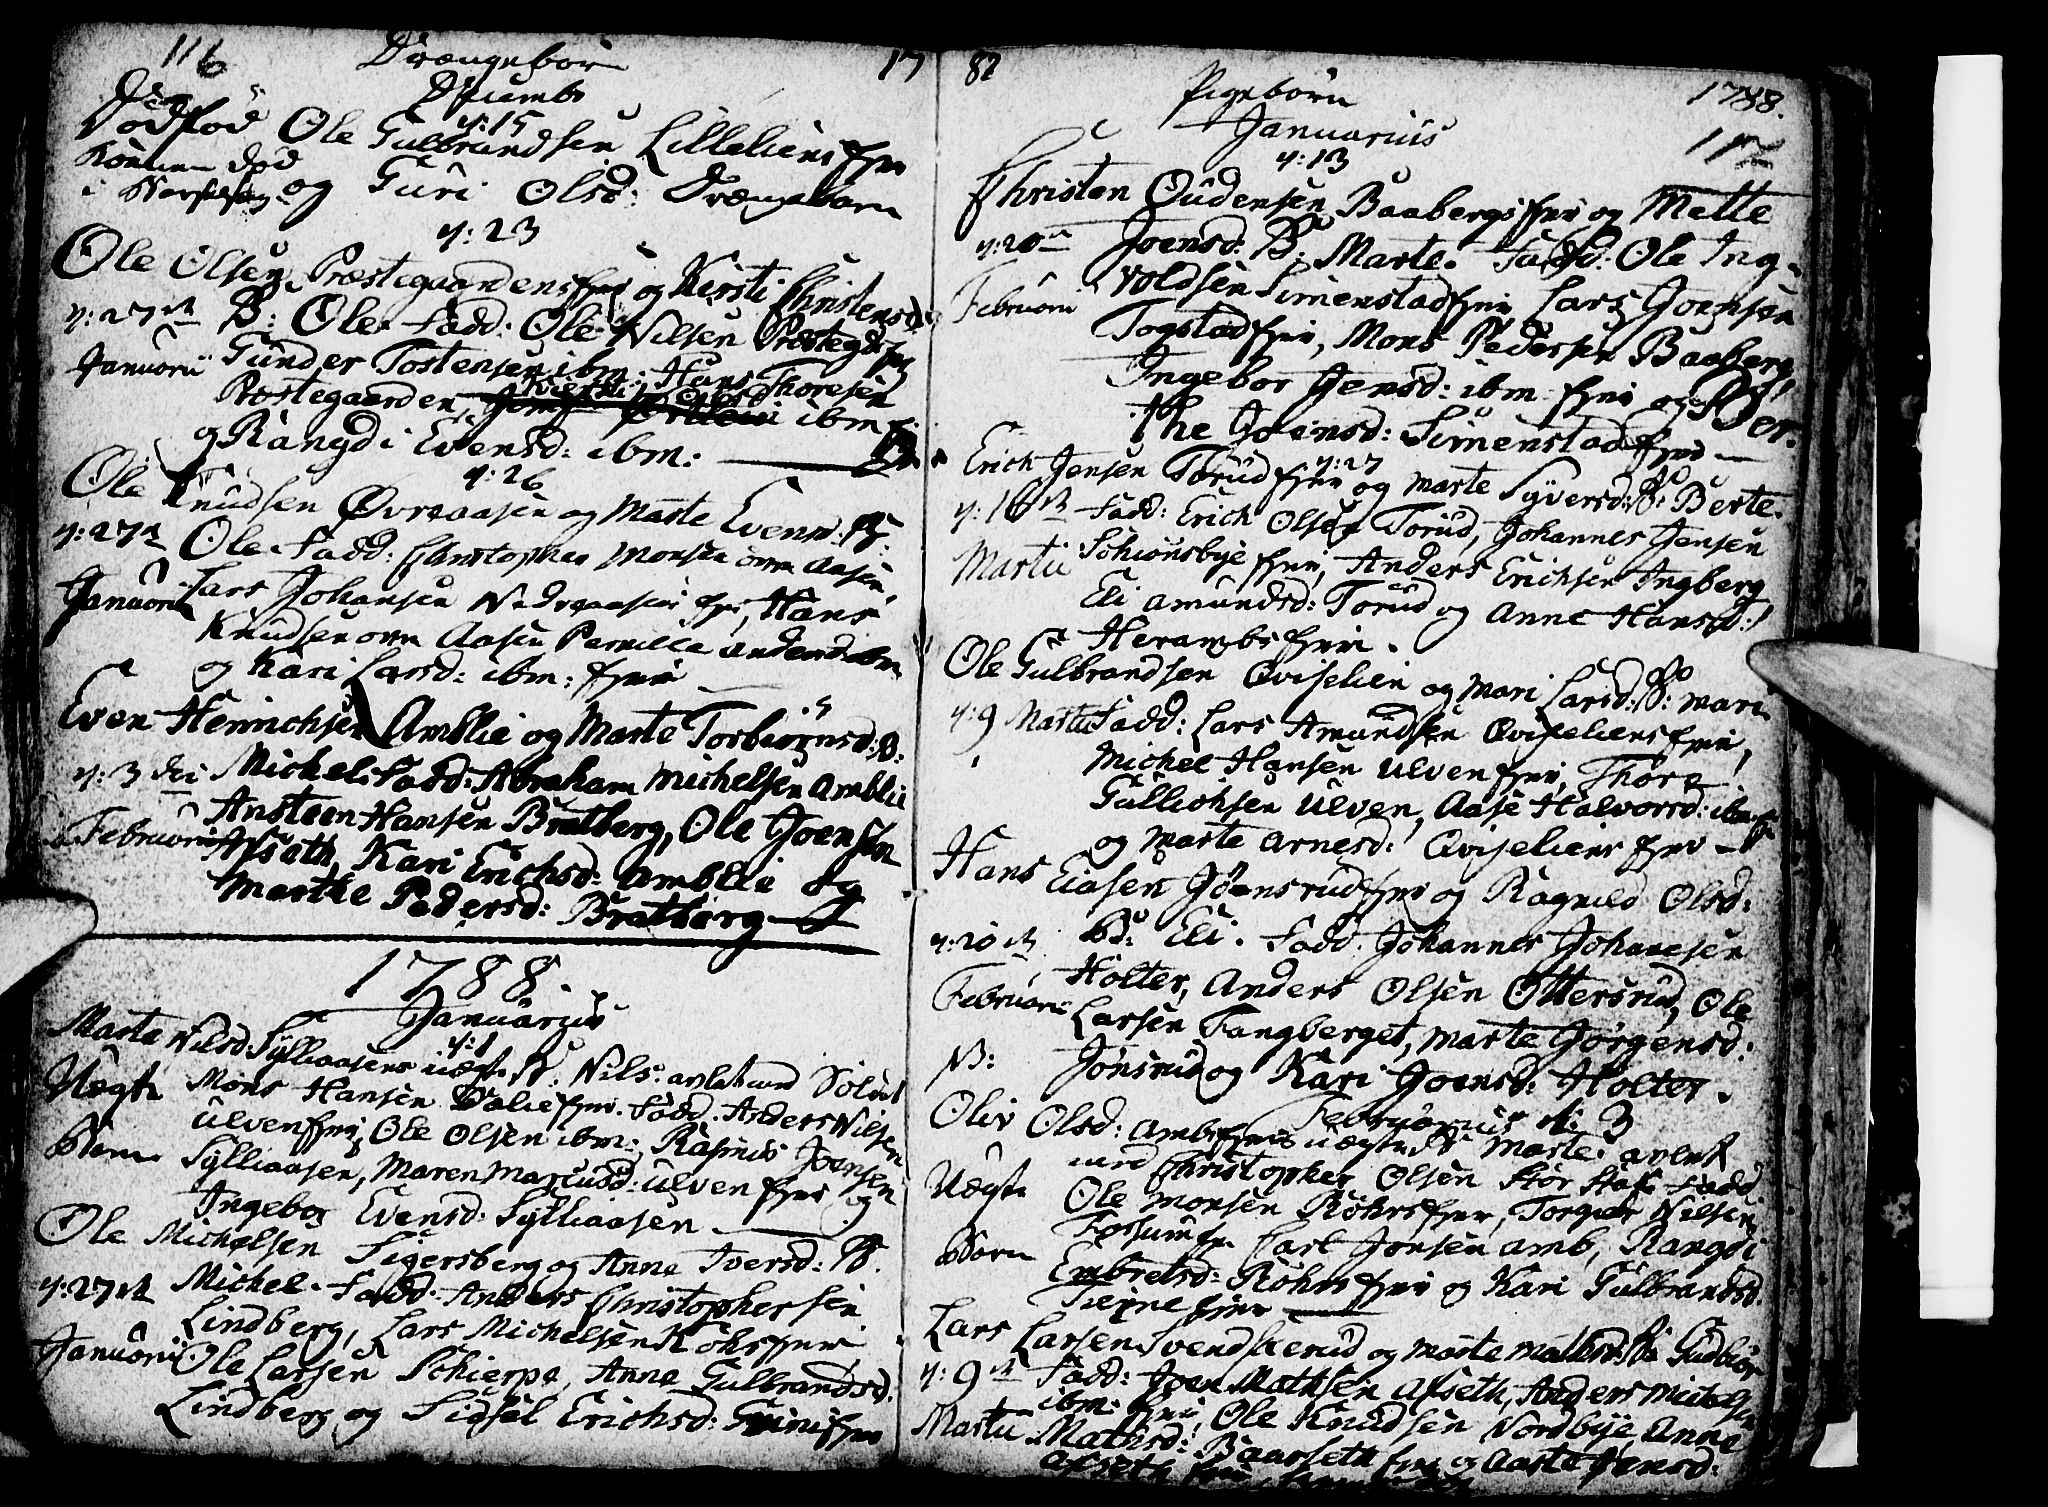 116 Drængebör 17
Dödföd Ole Gulbrandsen Lilleliens fyrr
kommen död
i Barselseng og Guri Olsd: Drængebarn
d: 23
Ole Olsen Præstegaardens fyrr og Kirsti Christensd:
d: 27de B: Ole. Fadd: Ole Nilsen Præstegds fyr
Januarii Gunder Tostensen ibm: Hans Thoresen
Præstegaarden, ibm
og Rangdi Evensd: ibm:
d: 26
Ole Knudsen Øvreaasen og Marte Evensd: B:
d: 27de Ole. Fadd: Christopher Monsen Aasen,
Januarii Lars Johansen Nedreaasen fyr, Hans
Knudsen Aasen Pernille ibm
og Kari Larsd: ibm: fyrr
Even Henrichsen Amblie og Marte Torbiörnsd: B:
d: 3 dei Michel. Fadd: Abraham Michelsen Amblie
Ansteen Hansen Bratberg, Ole Joensen
Februarii Afseth, Kari Erichsd: Amblie og
Marthe Pedersd: Bratberg
1788.
Januarius
d: 1
Marte Nilsd: Sylliaasens uægte B: Nils. avlet med Soldat
Uægte Mons Hansen Dalie fyrr. Fadd. Anders Nilsen
Ulven fyrr, Ole Olsen ibm: Rasmus Joensen
Barn Sylliaasen, Maren Marcusd: Ulven fyrr og
Ingebor Evensd: Sylliaasen
Ole Michelsen Sigersberg og Anne Iversd: B.
d: 27de Michel. Fadd: Anders Christophersen
Lindberg, Lars Michelsen Kohs fyrr
Januarii Ole Larsen Schierpe, Anne Gulbrandsd.
Lindberg og Sidsel Erichsd: fyrr
87 Pigebörn 1788.
Januarius 117
d: 13
Christen Oudensen Baabergs fyrr og Mette
d: 20de Joensd: B: Marte. Fadd: Ole Ing-
Februarii voldsen Simenstad fyrr, Lars Joensen
Togstad fyrr, Mons Pedersen Baaberg,
Ingebor Jensd: ibm fyrr og Ber-
the Joensd: Simenstad fyrr
d: 27
Erich Jensen Torud fyrr og Marte Syversd: B: Berte.
d: 16de Fadd: Erich Olsen Torud, Johannes Jensen
Martii Schiönsbye fyrr, Anders Erichsen Ingberg
Eli Amundsd: Torud og Anne Hansd:
Herambs fyrr.
Ole Gulbrandsen Qviselien og Mari Larsd: B: Mari
d: 9 Martii Fadd: Lars Amundsen Qviseliens fyrr,
Michel Hansen Ulven fyrr, Thore
Gullichsen Ulven, Aase Halvorsd: ibm
og Marte Arnesd: Qviseliens fyrr
Hans Eiasen Jöensrud fyrr og Ragnild Olsd:
d: 20de B: Eli. Fadd. Johannes Johannesen
Holter, Anders Olsen Ottersrud, Ole
Februarii Larsen Tangberget, Marte Jörgensd:
N: Jönsrud og Kari Joensd: Holter.
Februarius d: 3
Oliv Olsd: Ambs fyrr uægte B: Marte. avlet
med Christopher Olsen Stör Fadd
Uægte Ole Monsen Röhrs fyrr, Torger Nilsen
Fossum fyr Carl Jonsen Amb, Rangdi
Barn Embretsd: Röhrs fyrr og Kari Gulbrandsd.
Teigne fyrr
Lars Larsen Svendserud og Marte B: Gudbiör
d: 9de Fadd: Joen Mathsen Afseth, Anders Michelsen
ibm: fyrr, Ole Knudsen Nordbye, Anne
Martii Mathisd: Baarseth fyrr og Aaste Jensd:
Afseth fyrr